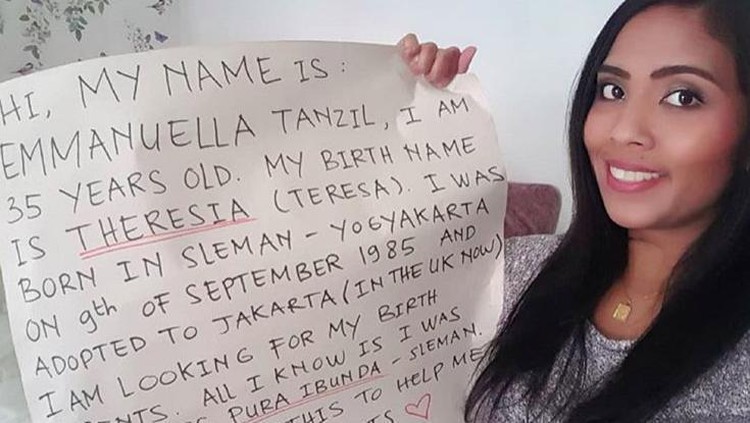 HI, MY NAME IS:
EMMANUELLA TANZIL, I AM
35 YEARS OLD. MY BIRTH NAME
IS THERESIA (TERESA). I WAS
BORN IN SLEMAN - YOGYAKARTA
ON 9th OF SEPTEMBER 1985 AND
ADOPTED TO JAKARTA (IN THE UK NOW)
I AM LOOKING FOR MY BIRTH
ALL I KNOW IS I WAS
PURA IBUNDA - SLEMAN.
THIS TO HELP ME